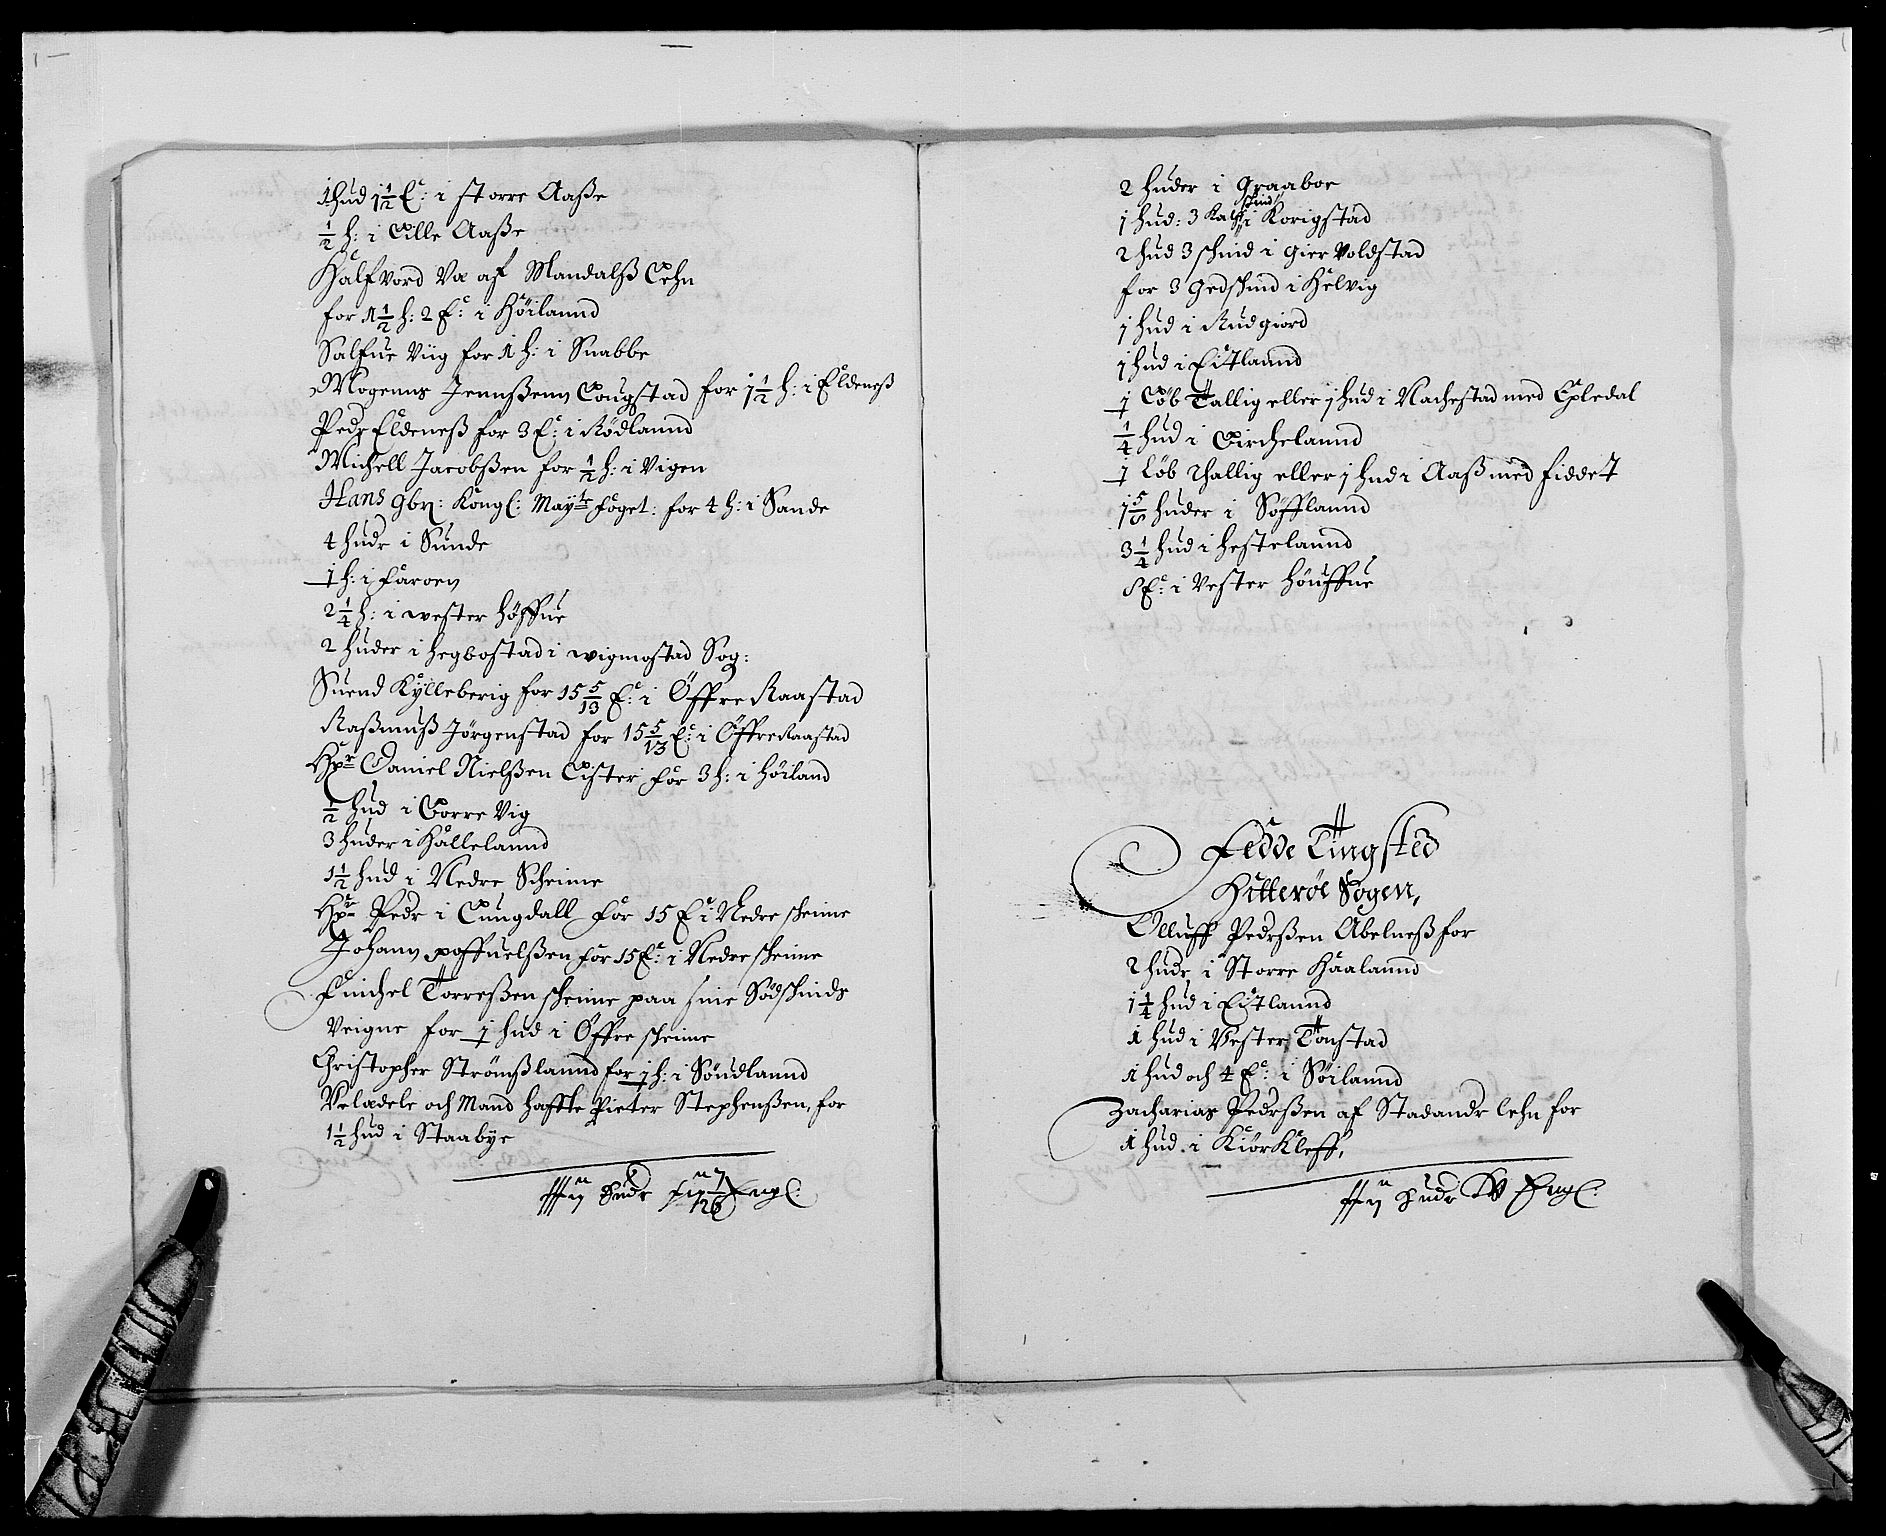 1 hud 1 1/2 E: i storre Aaße
1/2 h: i Lille Aaße
Halfvord Væ af Mandalß Lehn
for 1 1/2 h: 2 E: i Höilannd
Salfue Viig for 1 h: i Snabbe
Mogenns Jennßenn Lougstad for 1 1/2 h: i Eldeneß
Pedr Eldeneß for 3 E: i Rödlannd
Michell Jacobßen for 1/2 h: i Vigen
Hans Gbr: Kongl: Mayts foget: for 4 h: i Sande
4 hudr i Sunde
1 h: i Faroen
2 1/4 h: i wester Höffue
2 huder i Hegbostad i wigmostad Sog:
Suend Kylleberig for 15 5/13 E: i Öffre Raastad
Raßmuß Jörgenstad for 15 5/13 E: i Öffre Raastad
Hr Daniel Nielßen Lister for 3 h: i Höiland
1/2 hud i Borre Vig
3 huder i Hallelannd
1 1/2 hud i Nedre Scheime
Hr Pedr i Lungdall for 15 E: i Nedre scheime
Johann poffuelßen for 15 E: i Nedre scheime
Enichel Torreßen scheime paa sine Södschinds
Veigne for 1 hud i Öffre scheime
Christopher Strömßlannd for 1 h: i Söudlannd
Velædele och Mand haffte Pieter Stephenßen, for
1 1/2 hud i Staabye
hudr Engl:
2 huder i Graaboe
1 hud: 3 Kalfschind i Korigstad
2 hud 3 schind i Giervoldstad
for 3 Gedschind i Helvig
1 hud i Rudgiord
1 hud i Eitlannd
1 Löb Tallig eller 1 hud i Nachestad med Epledal
1/4 hud i Birchelannd
1 Löb Thallig eller 1 hud i Aaß med fiddet
1 5/8 huder i Söfflannd
3 1/4 hud i Hestelannd
8 E: i Vester Höuffue
Fedde Tingsted
Hitteröe Sogen,
Olluff Pedrßen Abelneß for
2 hudr i Storre Haalannd
1 1/4 hud i Eitlannd
1 hud i Vester Tonstad
1 hud och 4 E: i Söilannd
Zacharias Pedrßen af Stadandr lehn for
1 hud i Kiörkleff,
hudr Engl: